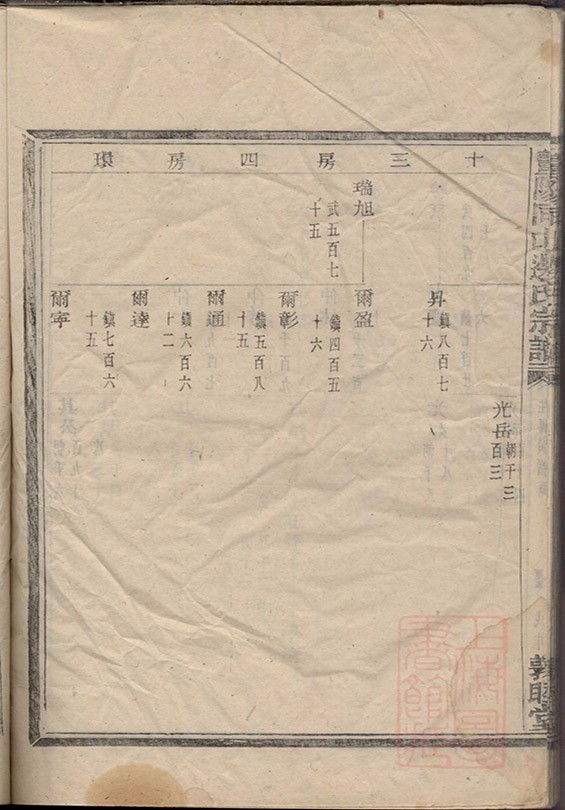 暨陽同山邊氏宗譜
敦睦堂
十三房四房環
光岳
朝千三
百三
昇
鎮八百七
十六
瑞旭
武五百七
十五
爾盈
鎮四百五
十六
爾彰
鎮五百八
十五
爾通
鎮六百六
十二
爾達
鎮七百六
十五
爾寧
上海圖
書館藏